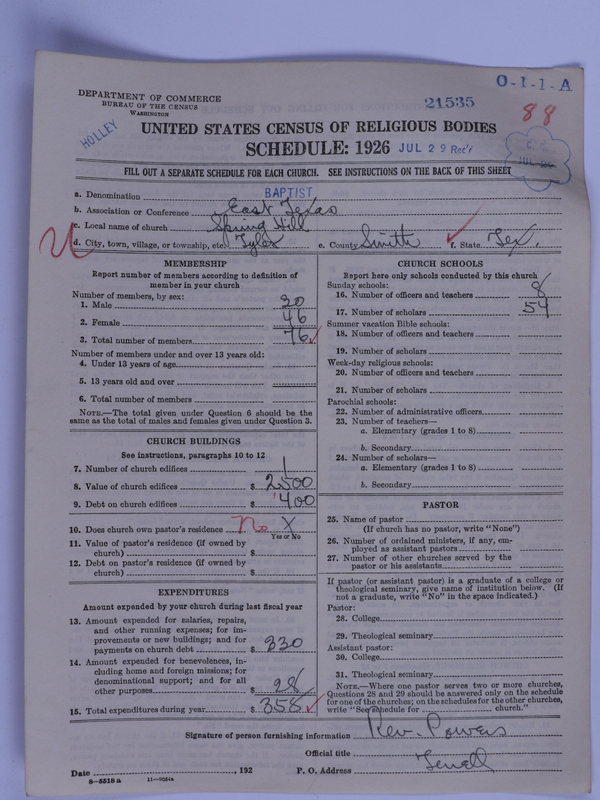 O-I-1-A
DEPARTMENT OF COMMERCE
BUREAU OF THE CENSUS
WASHINGTON
21535
88
HOLLEY
UNITED STATES CENSUS OF RELIGIOUS BODIES
SCHEDULE: 1926 JUL 29 Rec'r
FILL OUT A SEPARATE SCHEDULE FOR EACH CHURCH. SEE INSTRUCTIONS ON THE BACK OF THIS SHEET
a. Denomination BAPTIST
b. Association or Conference East Texas
c. Local name of church Spring Hill
d. City, town, village, or township, etc. Tyler e. County Smith f. State Tex.
MEMBERSHIP
Report number of members according to definition of
member in your church
Number of members, by sex:
1. Male 30
2. Female 46
3. Total number of members 76
Number of members under and over 13 years old:
4. Under 13 years of age
5. 13 years old and over
6. Total number of members
NOTE.—The total given under Question 6 should be the
same as the total of males and females given under Question 3.
CHURCH BUILDINGS
See instructions, paragraphs 10 to 12
7. Number of church edifices 1
8. Value of church edifices $ 2500
9. Debt on church edifices $ 400
10. Does church own pastor's residence No X
Yes or No
11. Value of pastor's residence (if owned by
church) $
12. Debt on pastor's residence (if owned by
church) $
EXPENDITURES
Amount expended by your church during last fiscal year
13. Amount expended for salaries, repairs,
and other running expenses; for im-
provements or new buildings; and for
payments on church debt $ 330
14. Amount expended for benevolences, in-
cluding home and foreign missions; for
denominational support; and for all
other purposes $ 28
15. Total expenditures during year $ 358
CHURCH SCHOOLS
Report here only schools conducted by this church
Sunday schools:
16. Number of officers and teachers 8
17. Number of scholars 54
Summer vacation Bible schools:
18. Number of officers and teachers
19. Number of scholars
Week-day religious schools:
20. Number of officers and teachers
21. Number of scholars
Parochial schools:
22. Number of administrative officers
23. Number of teachers—
a. Elementary (grades 1 to 8)
b. Secondary
24. Number of scholars—
a. Elementary (grades 1 to 8)
b. Secondary
PASTOR
25. Name of pastor
(If church has no pastor, write "None")
26. Number of ordained ministers, if any, em-
ployed as assistant pastors
27. Number of other churches served by the
pastor or his assistants
If pastor (or assistant pastor) is a graduate of a college or
theological seminary, give name of institution below. (If
not a graduate, write "No" in the space indicated.)
Pastor:
28. College
29. Theological seminary
Assistant pastor:
30. College
31. Theological seminary
NOTE.—Where one pastor serves two or more churches,
Questions 28 and 29 should be answered only on the schedule
for one of the churches; on the schedules for the other churches,
write "See schedule for church."
Signature of person furnishing information Rev. Powers
Official title
Date , 192 P. O. Address Terrell
8—5518a 11—9084a